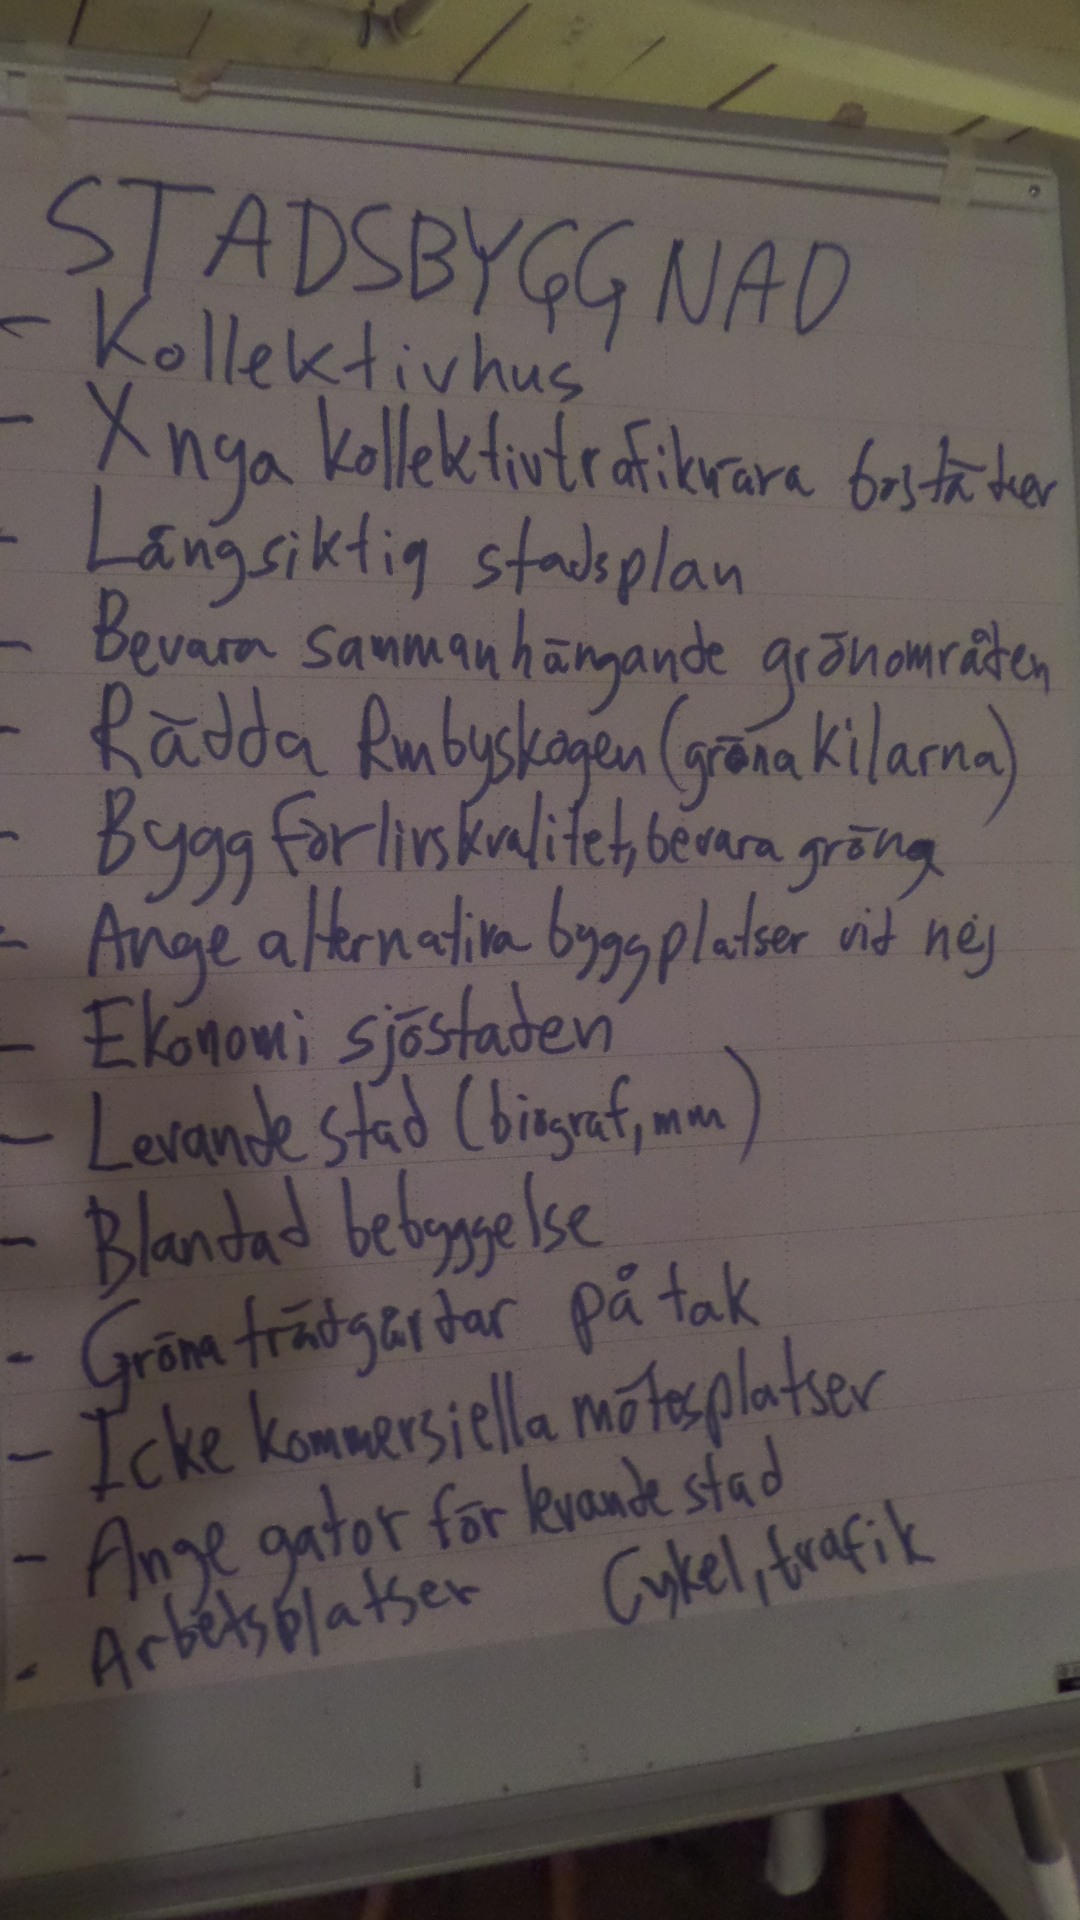 STADSBYGGNAD
- Kollektivhus
- X nya kollektivtrafiknära bostäder
- Långsiktig stadsplan
- Bevara sammanhängande grönområden
- Rädda Rmbyskogen (gröna kilarna)
- Bygg för livskvalitet, bevara gröna
- Ange alternativa byggplatser vid nej
- Ekonomi sjöstaden
- Levande stad (biograf, mm)
- Blandad bebyggelse
- Gröna trädgårdar på tak
- Icke kommersiella mötesplatser
- Ange gator för levande stad
- Arbetsplatser Cykel, trafik